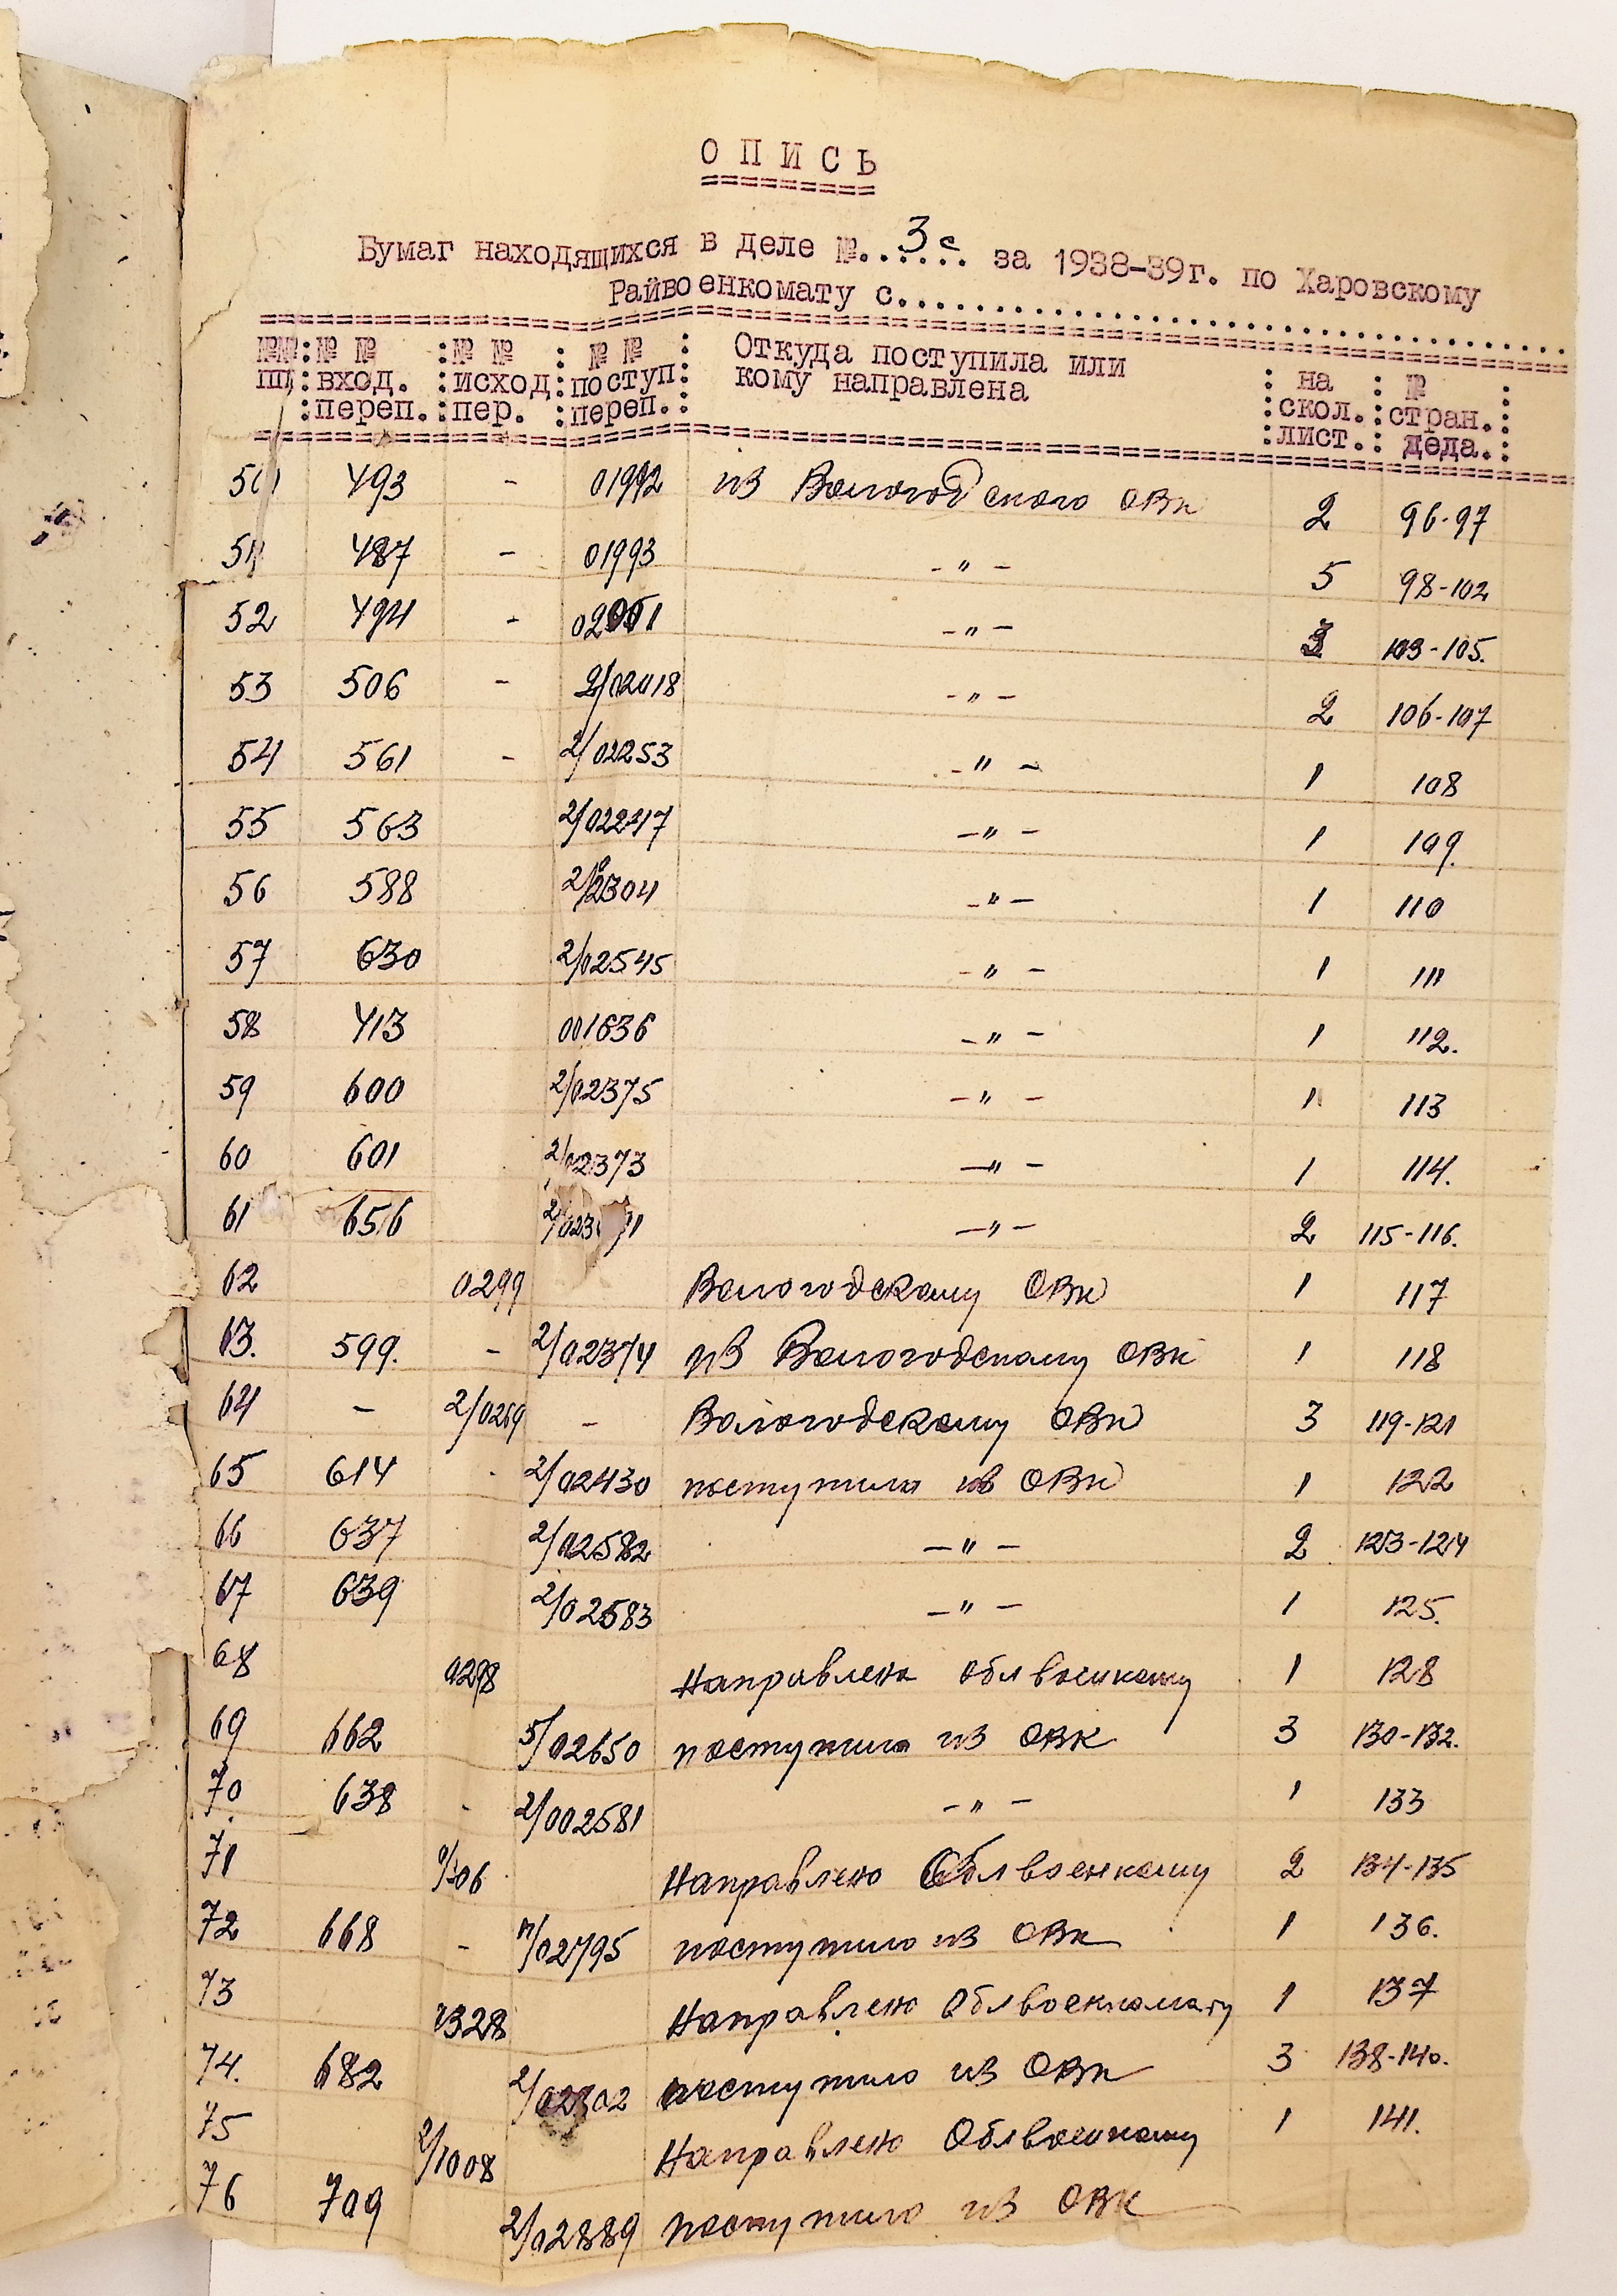 О П И С Ь
Бумаг находящихся в деле №. 3с за 1938-39г. по Харовскому
Райвоенкомату с
№№ : № № : № № : № № : Откуда поступила или : на : № :
пп : вход. : исход : поступ : кому направлена : скол. : стран. :
: переп. : пер. : переп. : : лист. : дела. :
50 493 - 01992 из Вологодского ОВк 2 96-97
51 487 - 01993 - " - 5 98-102
52 494 - 02001 - " - 3 103-105.
53 506 - 2/02018 - " - 2 106-107
54 561 - 2/02253 - " - 1 108
55 563 2/02247 - " - 1 109.
56 588 2/02304 - " - 1 110
57 630 2/02545 - " - 1 111
58 413 001636 - " - 1 112.
59 600 2/02375 - " - 1 113
60 601 2/02373 - " - 1 114.
61 656 - " - 2 115-116.
62 0299 Вологодскому ОВк 1 117
63. 599. - 2/02374 из Вологодскому ОВк 1 118
64 - 2/0269 - Вологодскому ОВк 3 119-121
65 614 - 2/02430 поступила из ОВк 1 122
66 637 2/02582 - " - 2 123-124
67 639 2/02583 - " - 1 125.
68 0298 Направлено облвоенкому 1 128
69 662 5/02650 поступило из ОВК 3 130-132.
70 638 - 2/002581 - " - 1 133
71 Направлено Облвоенкому 2 134-135
72 668 - поступило из ОВк 1 136.
73 Направлено Облвоенкомату 1 137
74. 682 поступило из ОВк 3 138-140.
75 2/1008 Направлено Облвоенкому 1 141.
76 709 2/02889 поступило из ОВК